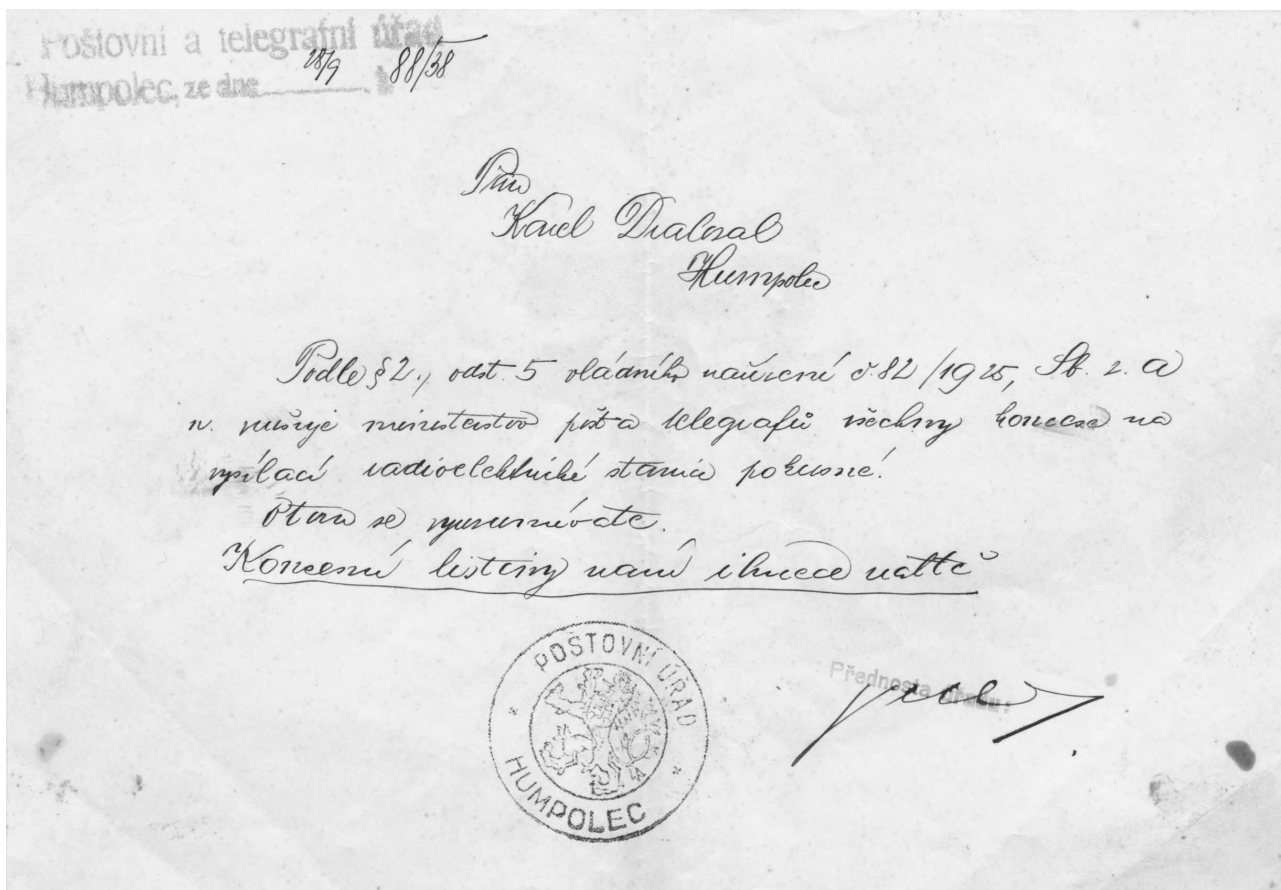 Poštovní a telegrafní úřad
Humpolec, ze dne 28/9 88/38
Pan
Karel
Humpolec
Podle § 2., odst. 5 vládního nařízení č. 82/1925, Sb. z. a
n. rušuje ministerstvo pošt a telegrafů všechny koncese na
vysílací radioelektrické stanice pokusné.
O tom se vyrozumíváte.
Koncesní listiny ihned
POŠTOVNÍ ÚŘAD
HUMPOLEC
Přednosta úřadu: